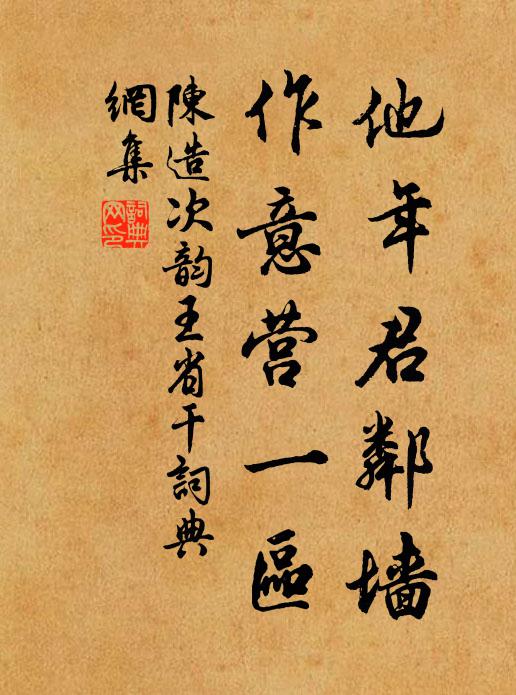 他年君鄰墙
作意营一區
陳造次韵王省干詞典
網集
詞典
网印